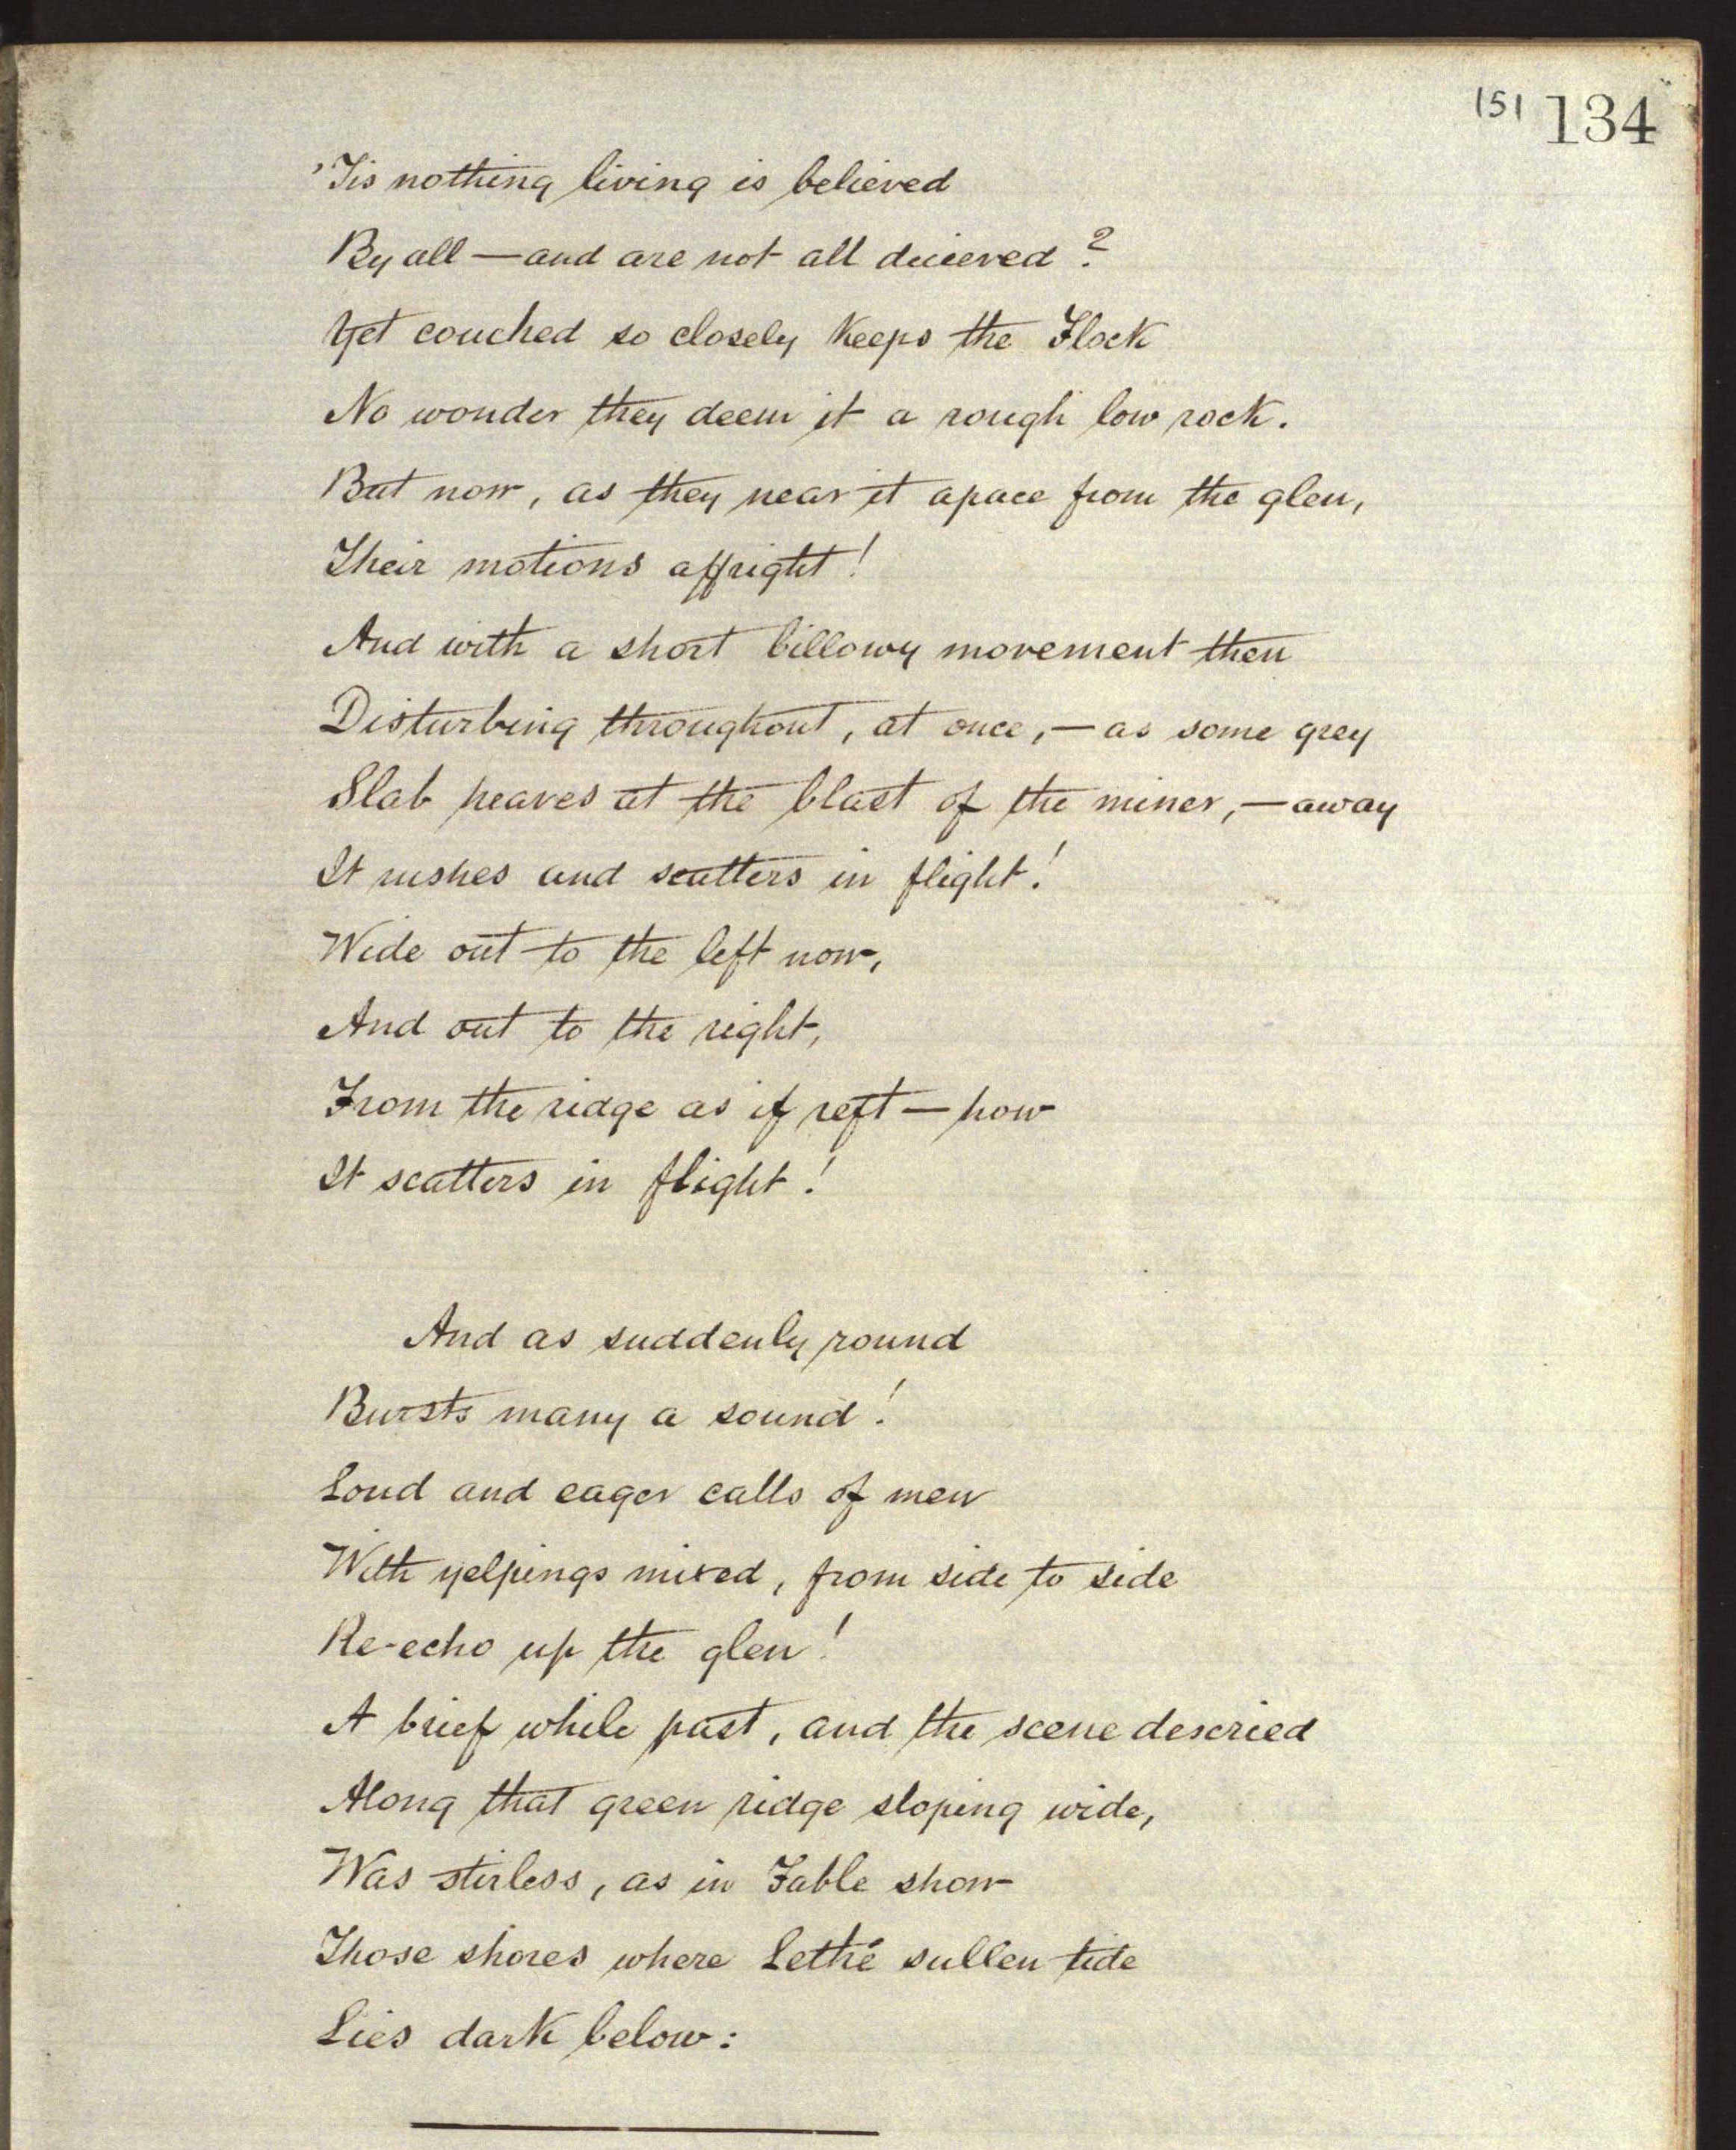 151 134
'Tis nothing living is believed
By all — and are not all decieved?
Yet couched so closely keeps the Flock
No wonder they deem it a rough low rock.
But now, as they near it apace from the glen,
Their motions affright!
And with a short billowy movement then
Disturbing throughout, at once, — as some grey
Slab heaves at the blast of the miner, — away
It rushes and scatters in flight!
Wide out to the left now,
And out to the right,
From the ridge as if reft — how
It scatters in flight!
And as suddenly round
Bursts many a sound!
Loud and eager calls of men
With yelpings mixed, from side to side
Re-echo up the glen!
A brief while past, and the scene descried
Along that green ridge sloping wide,
Was stirless, as in Fable show
Those shores where Lethé sullen tide
Lies dark below: